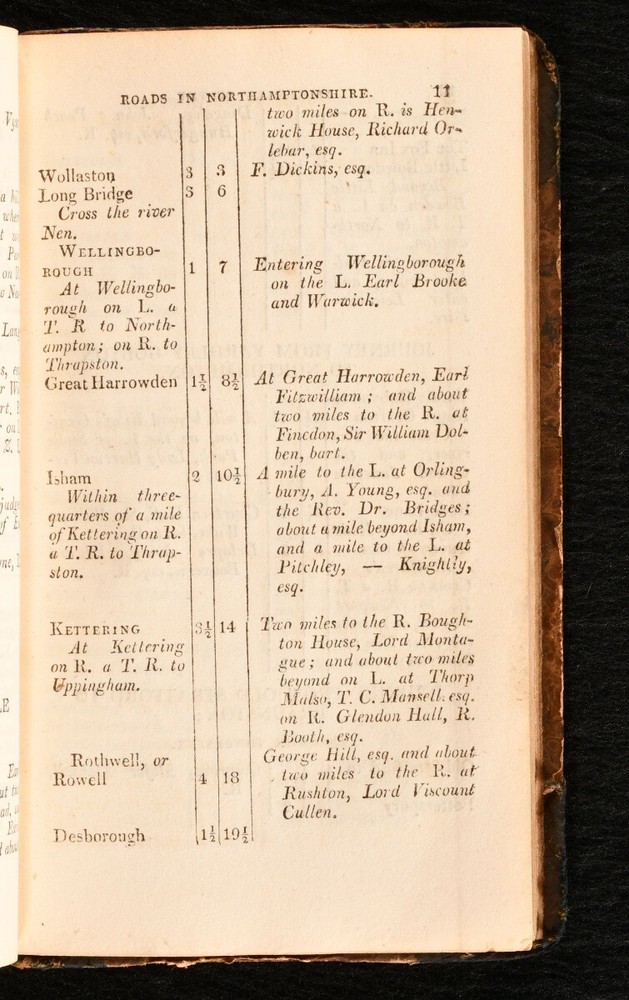 ROADS IN NORTHAMPTONSHIRE. 11
two miles on R. is Hen-
wick House, Richard Or-
lebar, esq.
Wollaston 3 3 F. Dickins, esq.
Long Bridge 3 6
Cross the river
Nen.
WELLINGBO-
ROUGH 1 7 Entering Wellingborough
on the L. Earl Brooke
and Warwick.
At Wellingbo-
rough on L. a
T. R to North-
ampton; on R. to
Thrapston.
Great Harrowden 1½ 8½ At Great Harrowden, Earl
Fitzwilliam; and about
two miles to the R. at
Finedon, Sir William Dol-
ben, bart.
Isham 2 10½ A mile to the L. at Orling-
bury, A. Young, esq. and
the Rev. Dr. Bridges;
about a mile beyond Isham,
and a mile to the L. at
Pitchley, — Knightly,
esq.
Within three-
quarters of a mile
of Kettering on R.
a T. R. to Thrap-
ston.
KETTERING 3½ 14 Two miles to the R. Bough-
ton House, Lord Monta-
gue; and about two miles
beyond on L. at Thorp
Malso, T. C. Mansell. esq.
on R. Glendon Hall, R.
Booth, esq.
At Kettering
on R. a T. R. to
Uppingham.
Rothwell, or
Rowell 4 18 George Hill, esq. and about
two miles to the R. at
Rushton, Lord Viscount
Cullen.
Desborough 1½ 19½